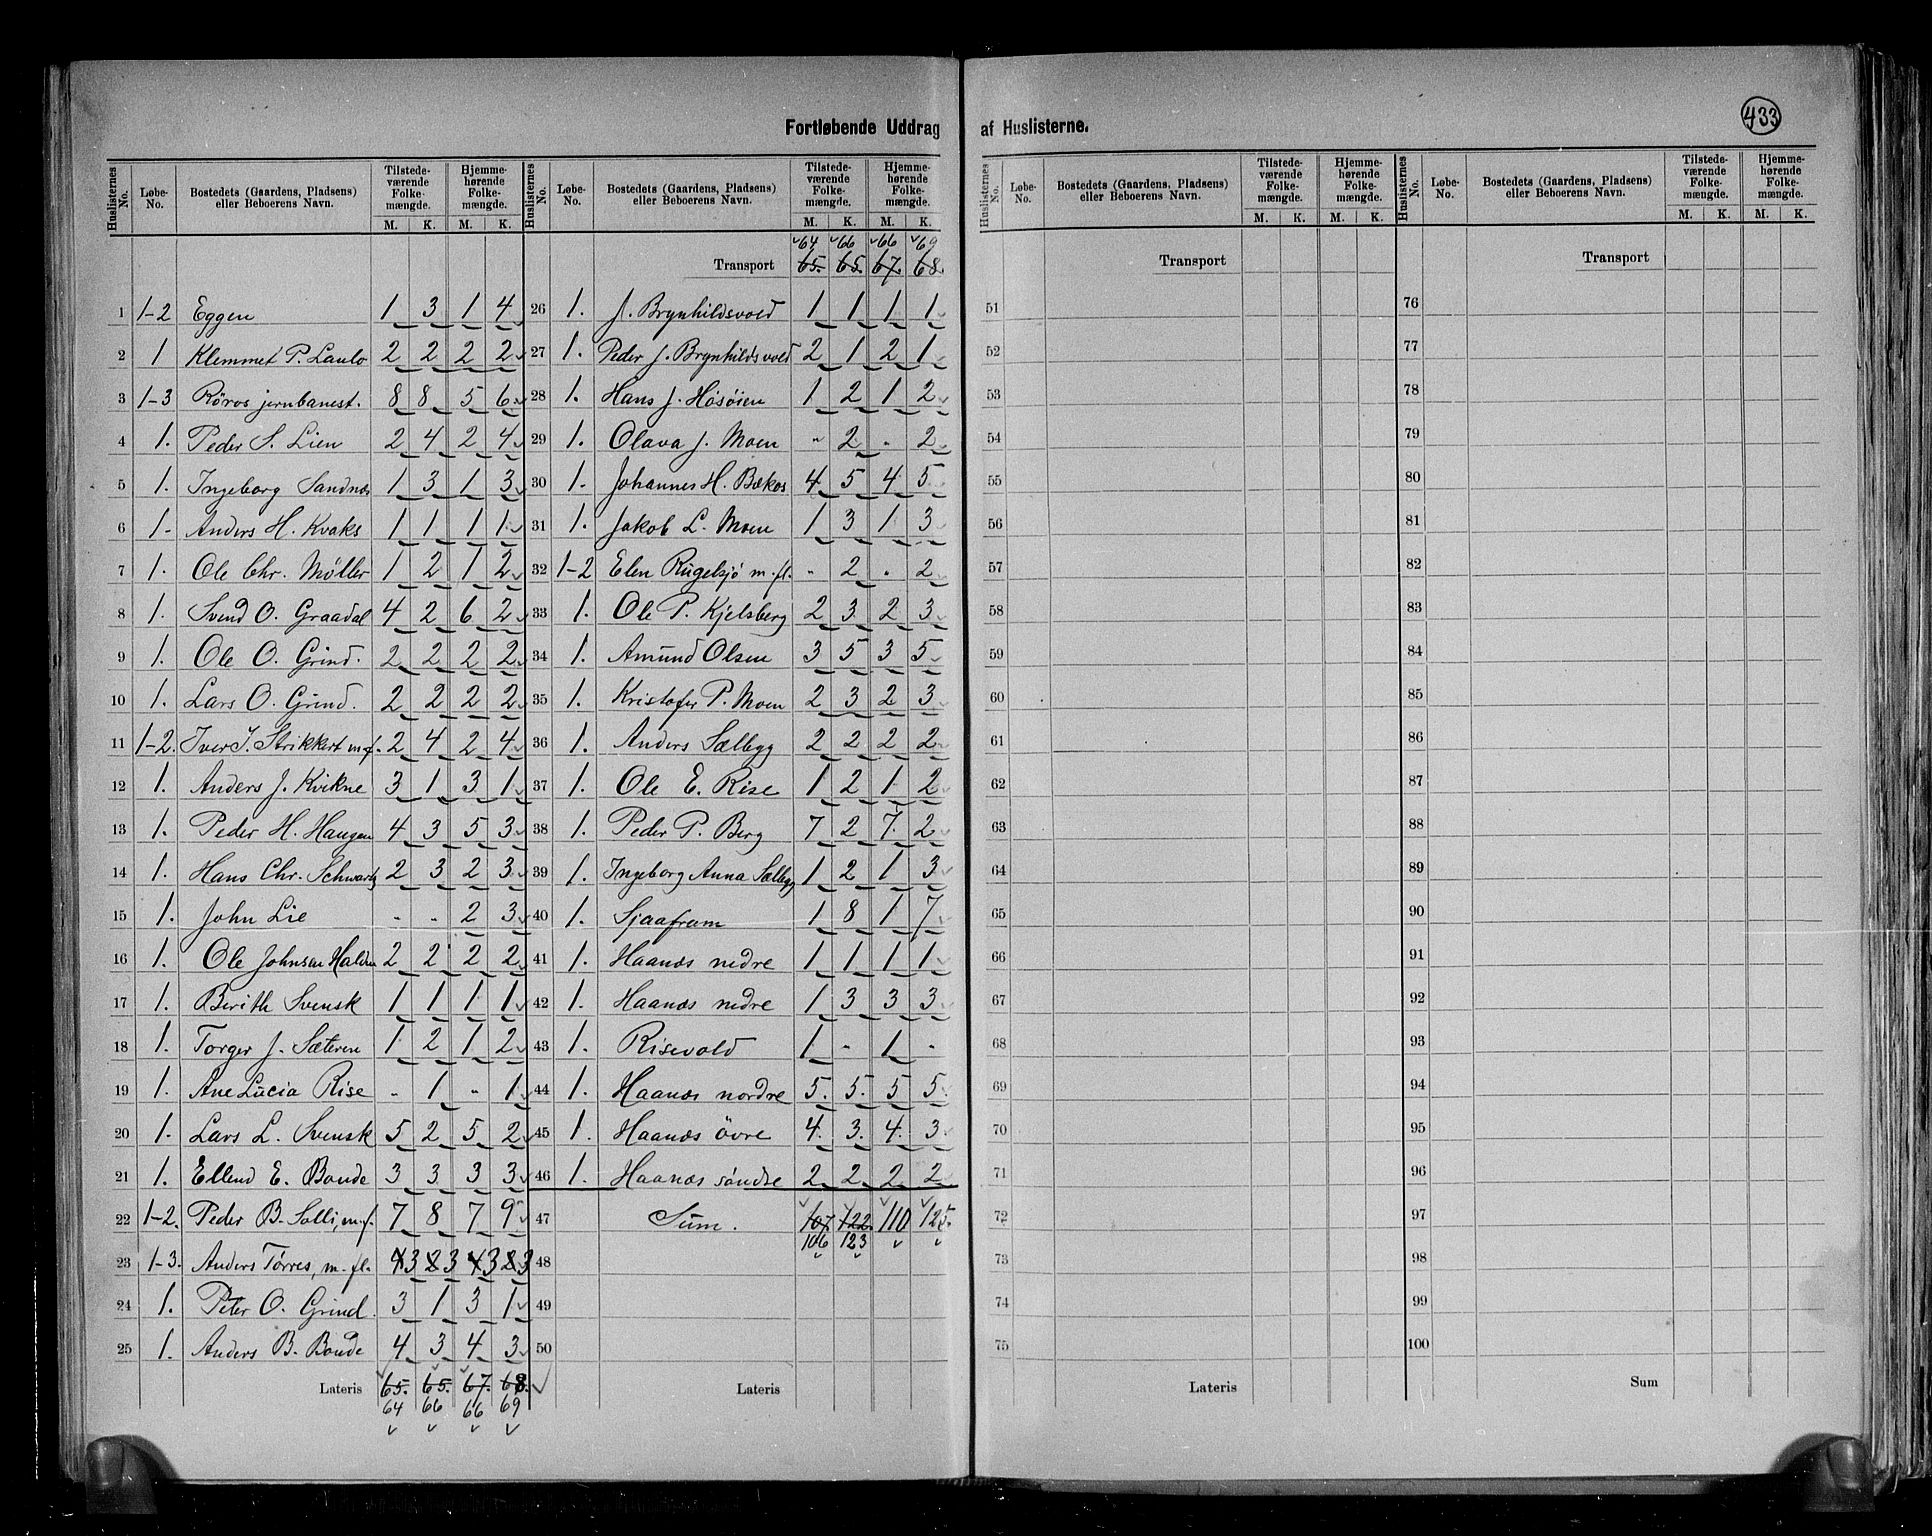 Fortløbende Uddrag af Huslisterne.
433
Huslisternes No. Løbe-No. Bostedets (Gaardens, Pladsens) eller Beboerens Navn. Tilstedeværende Folkemængde. M. K. Hjemmehørende Folkemængde. M. K.
1 1-2 Eggen 1 3 1 4
2 1 Klemmet P. Laulo 2 2 2 2
3 1-3 Röros jernbanest. 8 8 5 6
4 1. Peder S. Lien 2 4 2 4
5 1. Ingeborg Sandnæs 1 3 1 3
6 1- Anders H. Kvaks 1 1 1 1
7 1. Ole Chr. Møller 1 2 1 2
8 1. Svend O. Graadal 4 2 6 2
9 1. Ole O. Grind. 2 2 2 2
10 1. Lars O. Grind. 2 2 2 2
11 1-2. Iver J. Strikkert m.f. 2 4 2 4
12 1. Anders J. Kvikne 3 1 3 1
13 1. Peder H. Haugen 4 3 5 3
14 1. Hans Chr. Schwartz 2 3 2 3
15 1. John Lie - - 2 3
16 1. Ole Johnsen 2 2 2 2
17 1. Berith Svensk 1 1 1 1
18 1. Torger J. Sæteren 1 2 1 2
19 1. Ane Lucia Rise - 1 - 1
20 1. Lars L. Svensk 5 2 5 2
21 1. Ellend E. Bonde 3 3 3 3
22 1-2. Peder B. Solli, m.f. 7 8 7 9
23 1-3. Anders Tørres, m. fl. 4 3 2 3 4 3 2 3
24 1. Peter O. Grind. 3 1 3 1
25 1. Anders B. Bonde 4 3 4 3
Lateris 65. 65. 67. 68.
64 66 66 69
Huslisternes No. Løbe-No. Bostedets (Gaardens, Pladsens) eller Beboerens Navn. Tilstedeværende Folkemængde. M. K. Hjemmehørende Folkemængde. M. K.
64 66 66 69
Transport 65. 65. 67. 68.
26 1. J. Brynhildsvold 1 1 1 1
27 1. Peder J. Brynhildsvold 2 1 2 1
28 1. Hans J. Høsøien 1 2 1 2
29 1. Olava J. Moen - 2 - 2
30 1. Johannes H. Bækos 4 5 4 5
31 1. Jakob L. Moen 1 3 1 3
32 1-2 Elen Rugelsjö m. fl. - 2 - 2
33 1. Ole P. Kjelsberg 2 3 2 3
34 1. Amund Olsen 3 5 3 5
35 1. Kristofer P. Moen 2 3 2 3
36 1. Anders Sælbygg 2 2 2 2
37 1. Ole E. Rise 1 2 1 2
38 1. Peder P. Berg 7 2 7 2
39 1. Ingeborg Anna Sælbygg 1 2 1 3
40 1. Sjaafram 1 8 1 7
41 1. Haanæs nedre 1 1 1 1
42 1. Haanæs nedre 1 3 3 3
43 1. Risevold 1 - 1 -
44 1. Haanæs nordre 5. 5. 5 5
45 1. Haanæs övre 4. 3. 4. 3
46 1. Haanæs söndre 2 2 2 2
47 Sum. 107. 122. 110 125.
106 123
48
49
50
Lateris
Huslisternes No. Løbe-No. Bostedets (Gaardens, Pladsens) eller Beboerens Navn. Tilstedeværende Folkemængde. M. K. Hjemmehørende Folkemængde. M. K.
Transport
51
52
53
54
55
56
57
58
59
60
61
62
63
64
65
66
67
68
69
70
71
72
73
74
75
Lateris
Huslisternes No. Løbe-No. Bostedets (Gaardens, Pladsens) eller Beboerens Navn. Tilstedeværende Folkemængde. M. K. Hjemmehørende Folkemængde. M. K.
Transport
76
77
78
79
80
81
82
83
84
85
86
87
88
89
90
91
92
93
94
95
96
97
98
99
100
Sum